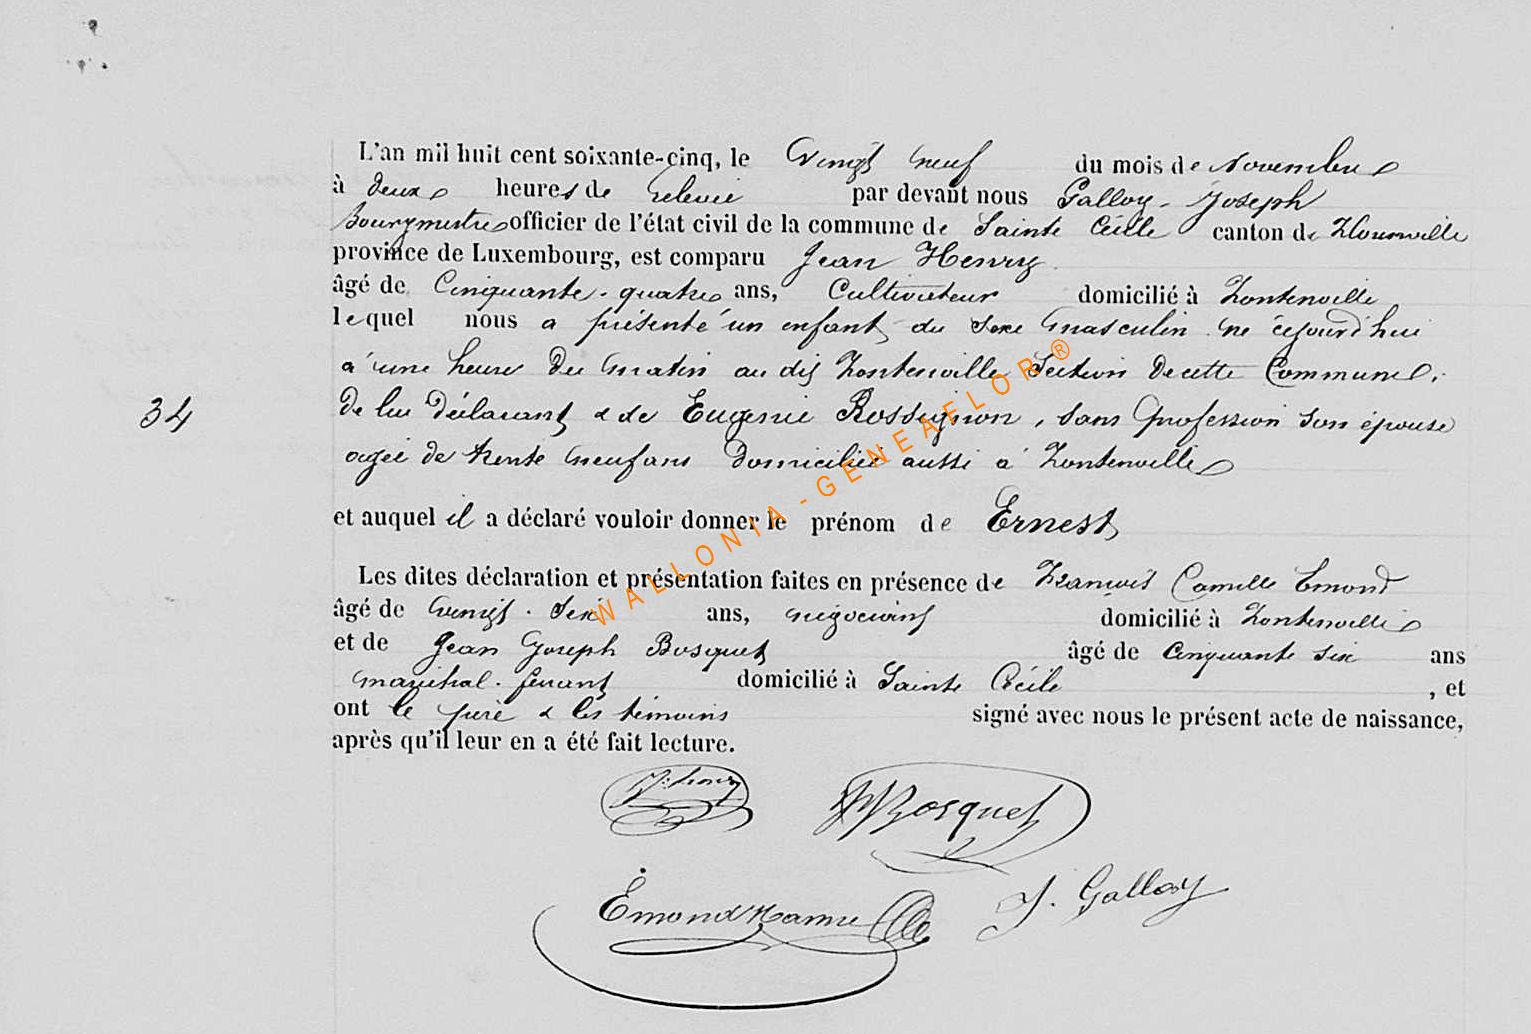 L'an mil huit cent soixante-cinq, le Vingt neuf du mois de Novembre
à deux heures de relevée par devant nous Galloy Joseph
Bourgmestre officier de l'état civil de la commune de Sainte Cécile canton de Florenville
province de Luxembourg, est comparu Jean Henry
âgé de Cinquante-quatre ans, Cultivateur domicilié à Fontenoille
lequel nous a présenté un enfant du sexe masculin né cejourd'hui
à une heure du matin au dit Fontenoille Section de cette Commune,
34
de lui déclarant & de Eugenie Rossignon, sans profession son épouse
agée de trente neuf ans domiciliée aussi à Fontenoille
et auquel il a déclaré vouloir donner le prénom de Ernest
Les dites déclaration et présentation faites en présence de François Camille Emond
âgé de vingt-six ans, négociant domicilié à Fontenoille
et de Jean Joseph Bosquet âgé de cinquante six ans
maréchal-ferrant domicilié à Sainte Cécile , et
ont le père & les témoins signé avec nous le présent acte de naissance,
après qu'il leur en a été fait lecture.
WALLONIA-GENEAFLOR®
J. henry
Bosquet
Emond
J. Galloy